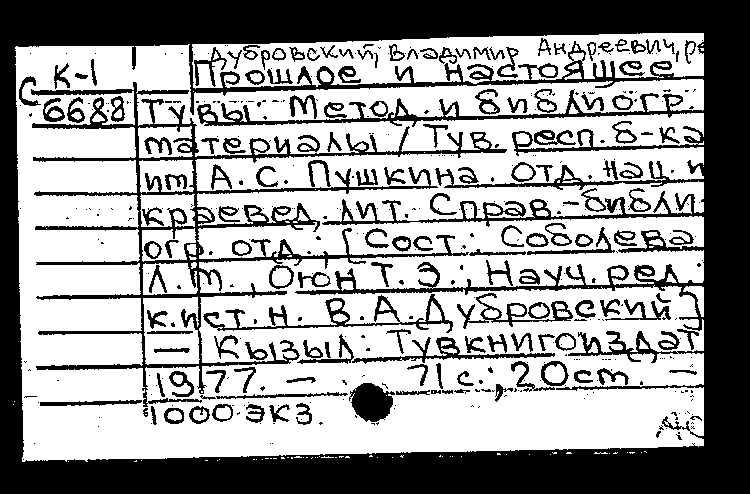 Дубровский, Владимир Андреевич, ре
К-1 Прошлое и настоящее
С 6688 Тувы: Метод. и библиогр.
материалы / Тув. респ. б-ка
им. А. С. Пушкина. Отд. нац. и
краевед. лит. Справ.-библи-
огр. отд.; [Сост.: Соболева
Л. М., Оюн Т. Э.; Науч. ред.:
к.ист.н. В. А. Дубровский]
— Кызыл: Тувкнигоиздат
1977. — 71 с.; 20 см. —
1000 экз.